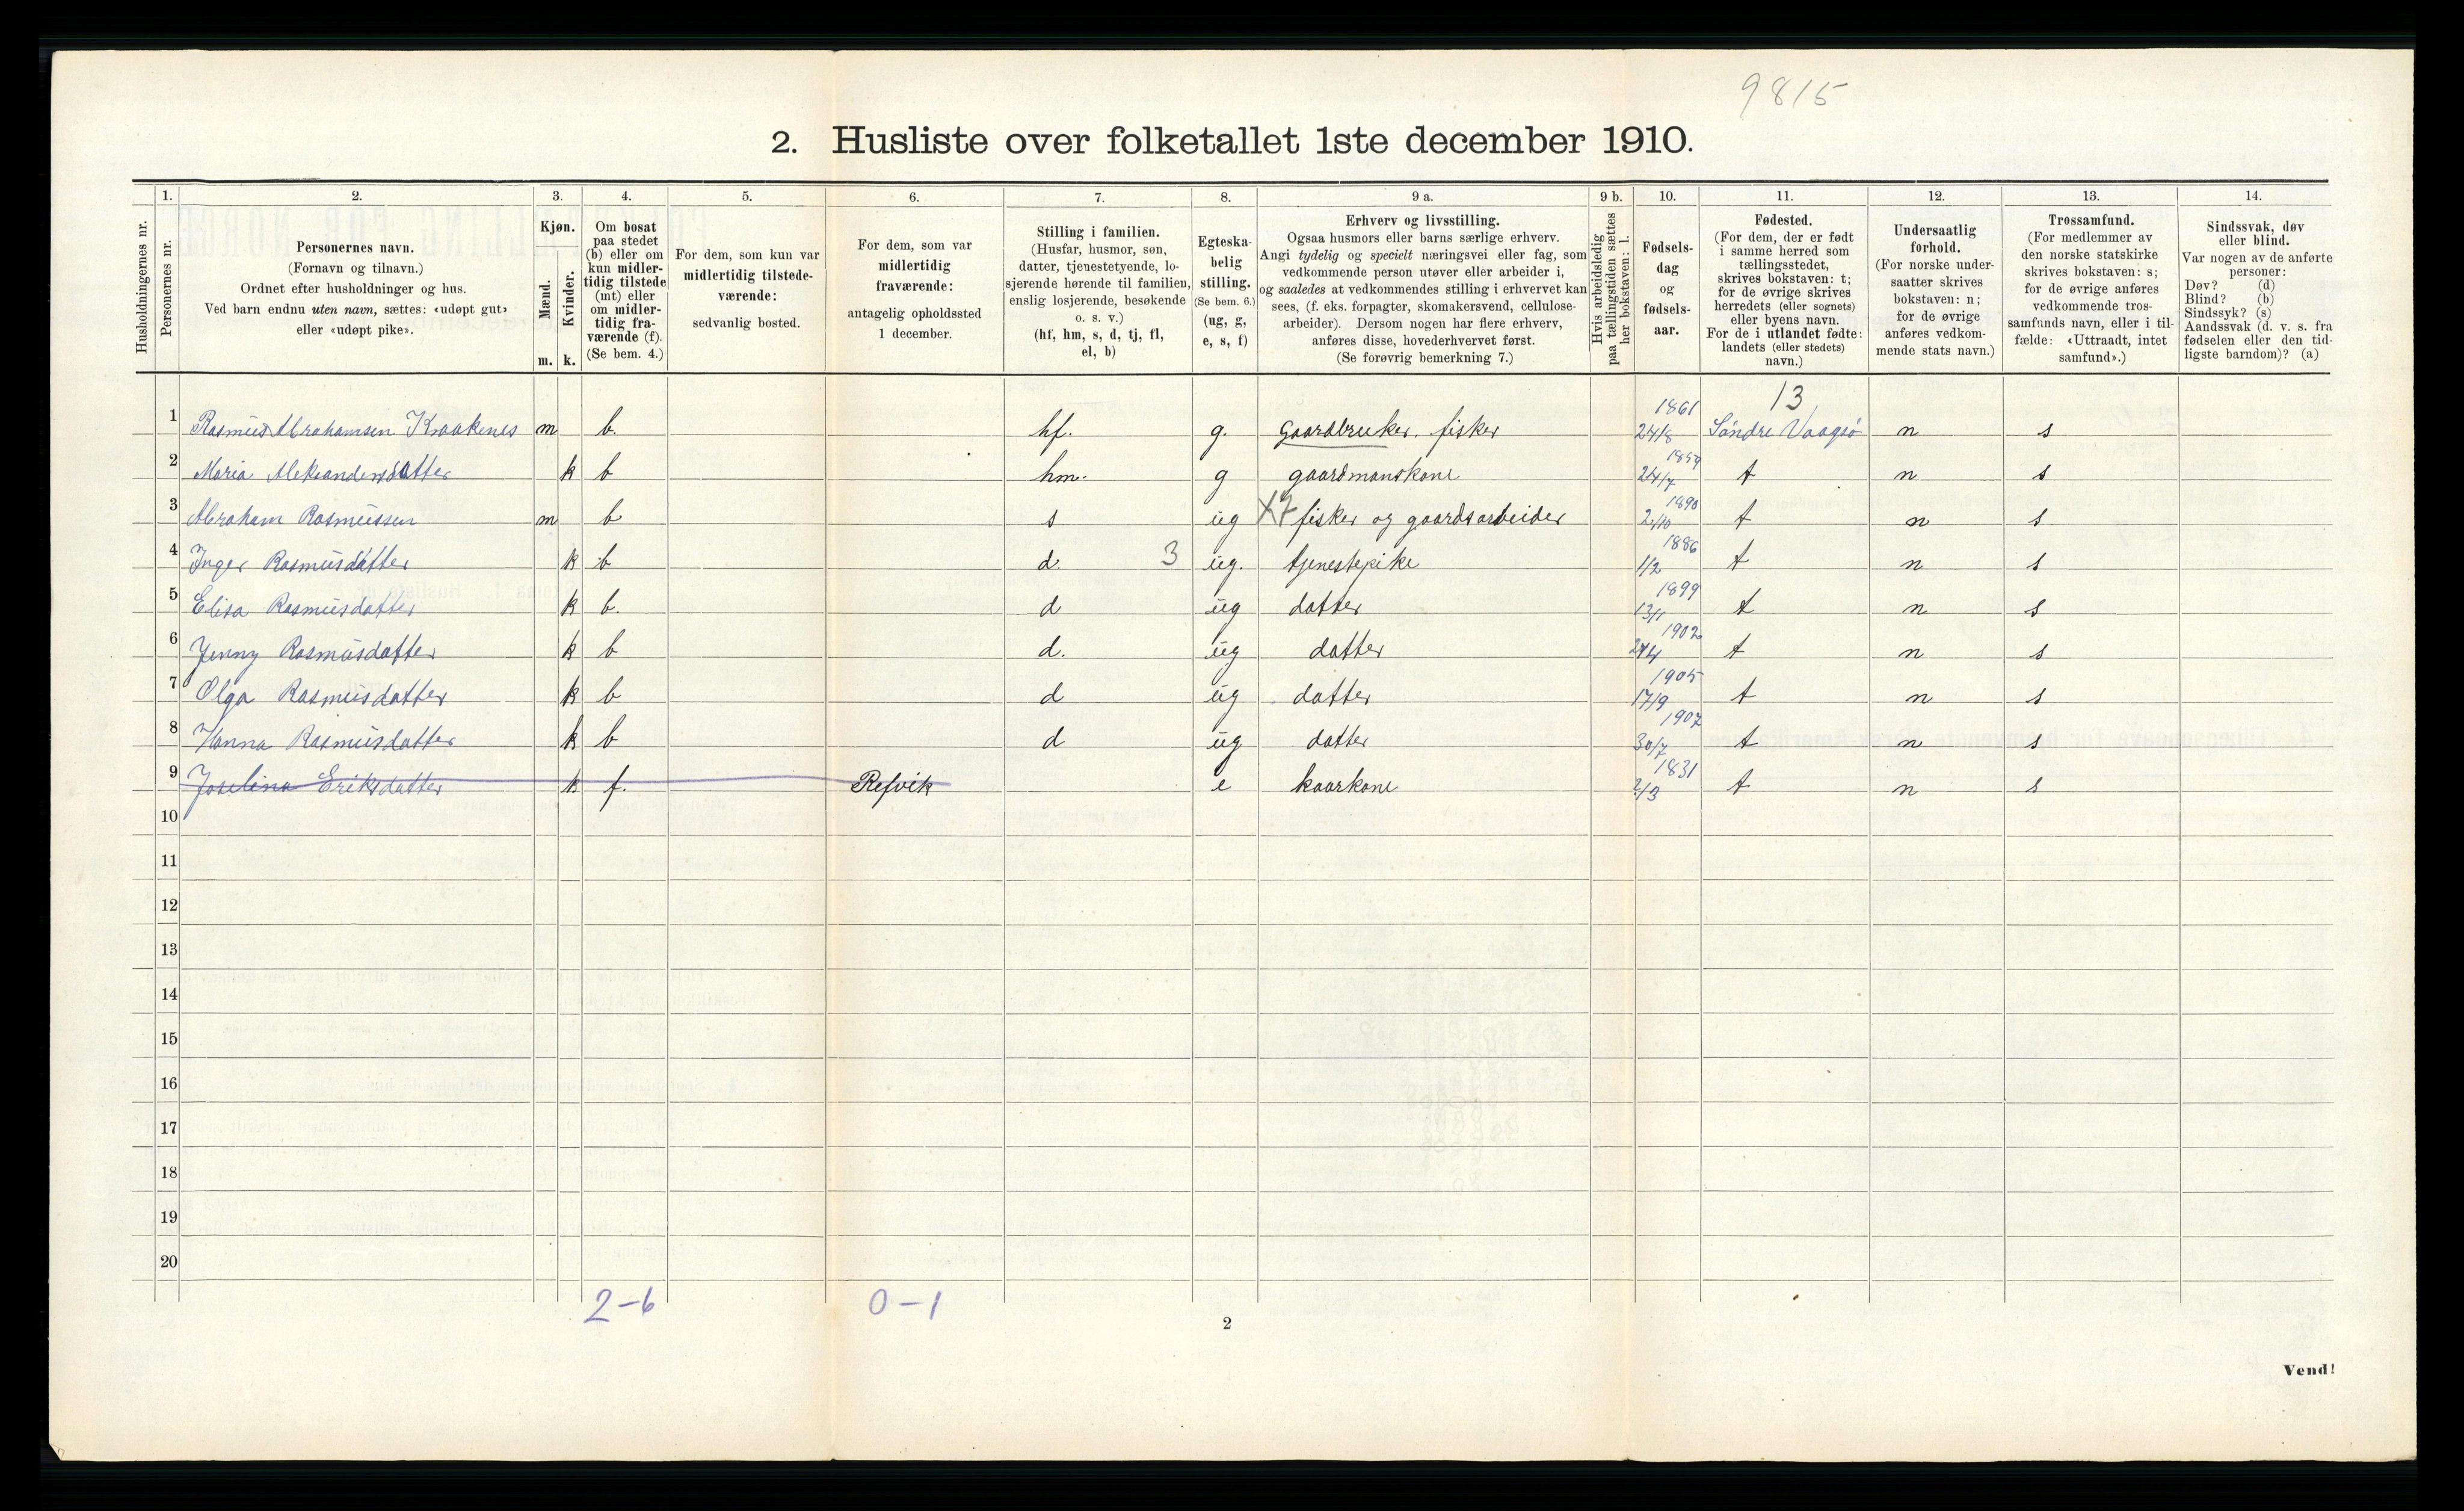 9815
2. Husliste over folketallet 1ste december 1910.
Husholdningernes nr.
1. Personernes nr.
2.
Personernes navn.
(Fornavn og tilnavn.)
Ordnet efter husholdninger og hus.
Ved barn endnu uten navn, sættes: «udøpt gut»
eller «udøpt pike».
3.
Kjøn.
Mænd. Kvinder.
m. k.
4.
Om bosat
paa stedet
(b) eller om
kun midler-
tidig tilstede
(mt) eller
om midler-
tidig fra-
værende (f).
(Se bem. 4.)
5.
For dem, som kun var
midlertidig tilstede-
værende:
sedvanlig bosted.
6.
For dem, som var
midlertidig
fraværende:
antagelig opholdssted
1 december.
7.
Stilling i familien.
(Husfar, husmor, søn,
datter, tjenestetyende, lo-
sjerende hørende til familien,
enslig losjerende, besøkende
o. s. v.)
(hf, hm, s, d, tj, fl,
el, b)
8.
Egteska-
belig
stilling.
(Se bem. 6.)
(ug, g,
e, s, f)
9 a.
Erhverv og livsstilling.
Ogsaa husmors eller barns særlige erhverv.
Angi tydelig og specielt næringsvei eller fag, som
vedkommende person utøver eller arbeider i,
og saaledes at vedkommendes stilling i erhvervet kan
sees, (f. eks. forpagter, skomakersvend, cellulose-
arbeider). Dersom nogen har flere erhverv,
anføres disse, hovederhvervet først.
(Se forøvrig bemerkning 7.)
9 b.
Hvis arbeidsledig
paa tællingstiden sættes
her bokstaven: l.
10.
Fødsels-
dag
og
fødsels-
aar.
11.
Fødested.
(For dem, der er født
i samme herred som
tællingsstedet,
skrives bokstaven: t;
for de øvrige skrives
herredets (eller sognets)
eller byens navn.
For de i utlandet fødte:
landets (eller stedets)
navn.)
12.
Undersaatlig
forhold.
(For norske under-
saatter skrives
bokstaven: n;
for de øvrige
anføres vedkom-
mende stats navn.)
13.
Trossamfund.
(For medlemmer av
den norske statskirke
skrives bokstaven: s;
for de øvrige anføres
vedkommende tros-
samfunds navn, eller i til-
fælde: «Uttraadt, intet
samfund».)
14.
Sindssvak, døv
eller blind.
Var nogen av de anførte
personer:
Døv? (d)
Blind? (b)
Sindssyk? (s)
Aandssvak (d. v. s. fra
fødselen eller den tid-
ligste barndom)? (a)
13
1 Rasmus Abrahamsen Kraakenes m b. hf. g. gaardbruker, fisker 1861 24/8 Søndre Vaagsø n s
2 Maria Aleksandersdatter k b hm. g gaardmanskone 24/7 t n s
3 Abraham Rasmussen m b s ug X7 fisker og gaardsarbeider 1890 2/10 t n s
4 Inger Rasmusdatter k b d. 3 ug. tjenestepike 1886 1/2 t n s
5 Elisa Rasmusdatter k b. d ug datter 1899 13/1 t n s
6 Jenny Rasmusdatter k b d. ug datter 1902 t n s
7 Olga Rasmusdatter k b d ug datter 1905 17/9 t n s
8 Hanna Rasmusdatter k b d ug datter 1907 30/7 t n s
9 Joselina Eriksdatter k f. Refvik e kaarkone 1831 2/3 t n s
10
11
12
13
14
15
16
17
18
19
20
2-6 0-1
2
Vend!